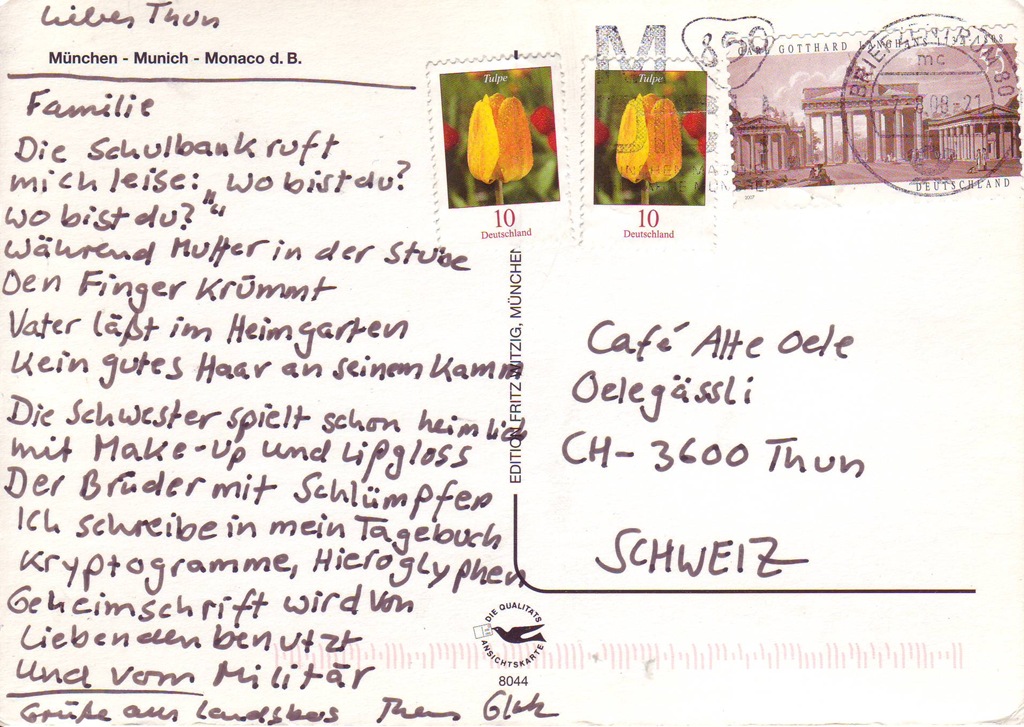 Liebes Thun
München - Munich - Monaco d. B.
Familie
Die Schulbank ruft
mich leise: „Wo bist du?
Wo bist du?"
Während Mutter in der Stube
Den Finger krümmt
Vater läßt im Heimgarten
Kein gutes Haar an seinem Kamm
Die Schwester spielt schon heimlich
mit Make-Up und Lipgloss
Der Bruder mit Schlümpfen
Ich schreibe in mein Tagebuch
Kryptogramme, Hieroglyphen
Geheimschrift wird von
Liebenden benutzt
Und vom Militär
Grüße aus
EDITION FRITZ WITZIG, MÜNCHEN
DIE QUALITÄTS
ANSICHTSKARTE
8044
Tulpe
10
Deutschland
Tulpe
10
Deutschland
M 850
CARL GOTTHARD LANGHANS
DEUTSCHLAND
2007
BRIEFZENTRUM 80
mc
Café Alte Oele
Oelegässli
CH- 3600 Thun
SCHWEIZ